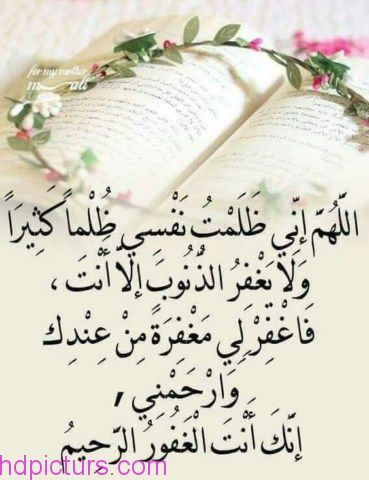 for my mother
m ali
اللَّهُمَّ إِنِّي ظَلَمْتُ نَفْسِي ظُلْماً كَثِيرَاً
وَلَا يَغْفِرُ الذُّنُوبَ إِلَّا أَنْتَ ،
فَاغْفِرْ لِي مَغْفِرَةً مِنْ عِنْدِكَ
وَارْحَمْنِي ,
إِنَّكَ أَنْتَ الْغَفُورُ الرَّحِيمُ
hdpicturs.com